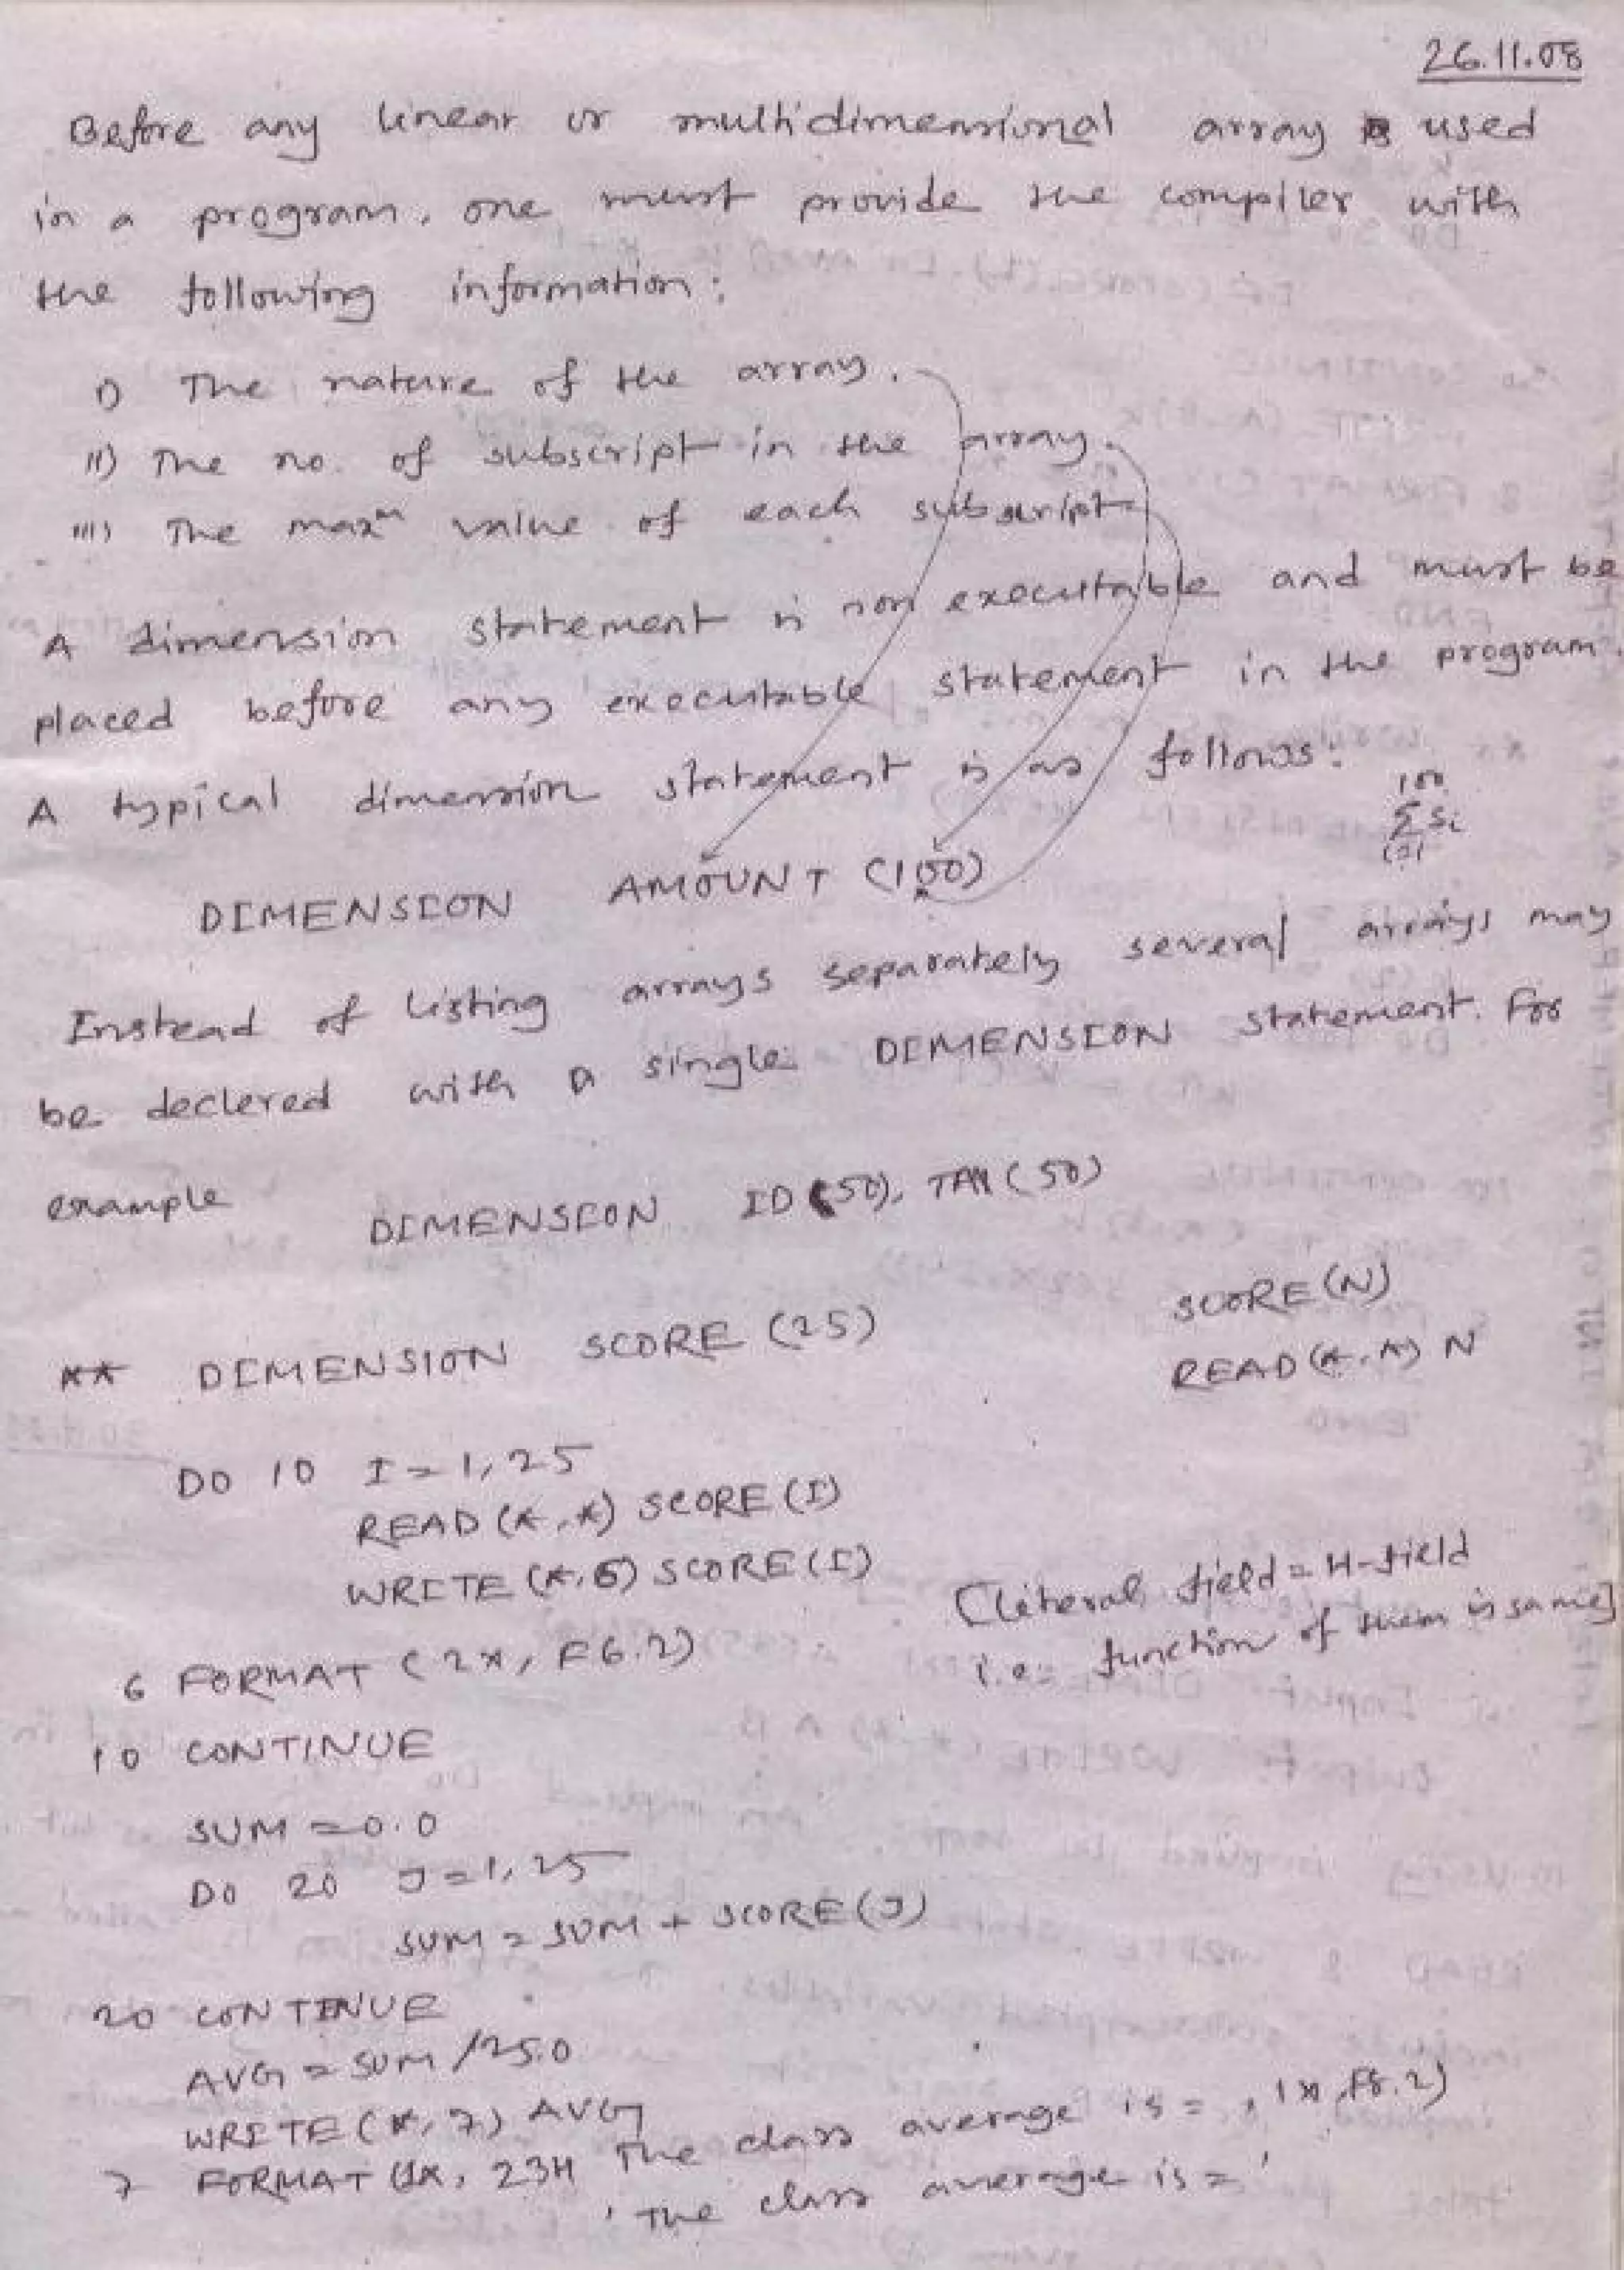 26.11.08
Before any linear or multidimensional array is used
in a program, one must provide the compiler with
the following information:
i) The nature of the array.
ii) The no. of subscript in the array.
iii) The maxm value of each subscript
A dimension statement is non executable and must be
placed before any executable statement in the program.
A typical dimension statement is as follows:
100
Σ Si
i=1
DIMENSION AMOUNT (100)
Instead of listing arrays separately several arrays may
be declered with a single DIMENSION statement. For
example
DIMENSION ID (50), TAX (50)
SCORE (N)
** DIMENSION SCORE (25)
READ (*,*) N
DO 10 I = 1, 25
READ (*,*) SCORE (I)
WRITE (*,6) SCORE (I)
[Literal field = H-field
i.e. function of them is same]
6 FORMAT (2X, F6.2)
10 CONTINUE
SUM = 0.0
DO 20 J = 1, 25
SUM = SUM + SCORE (J)
20 CONTINUE
AVG = SUM /25.0
WRITE (*, 7) AVG
7 FORMAT (1X, 23H The class average is = , 1X, F8.2)
' The class average is = '